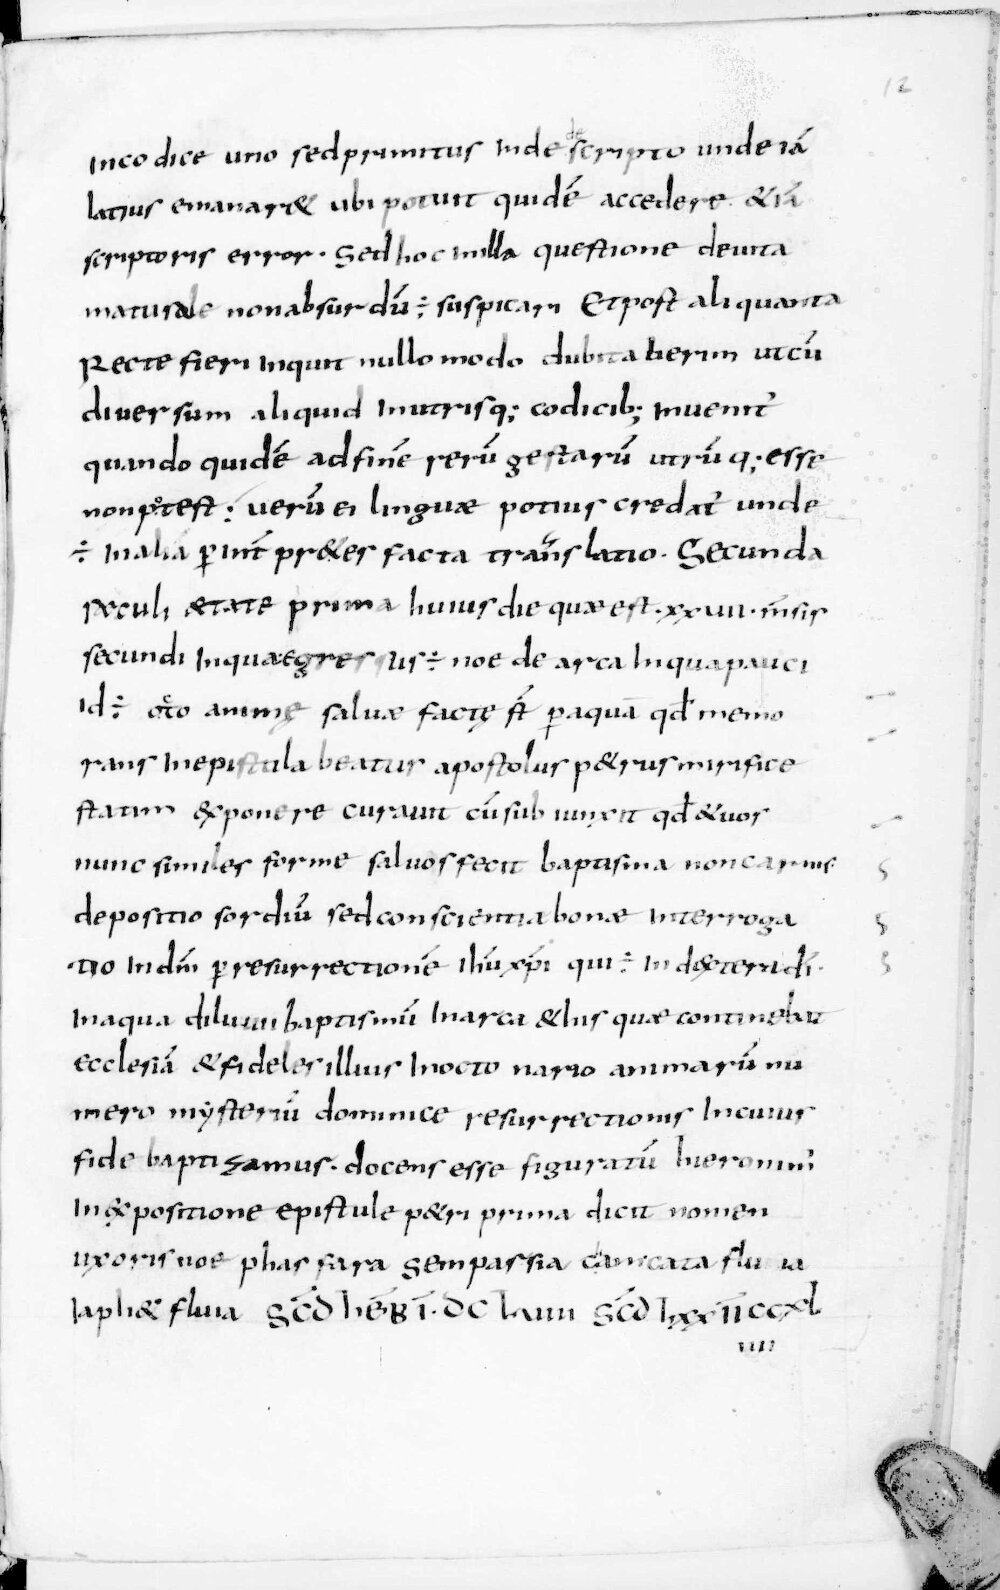 12
In codice uno sed primitus inde descripto unde iā
latius emanar& ubi potuit quidē accedere. &iā
scriptoris error. Sed hoc in illa questione de uita
matusale non absurdū ÷ suspicari Et post aliquanta
Recte fieri inquit nullo modo dubitauerim ut cū
diuersum aliquid in utrisq; codicib; inuenit̄
quando quidē ad finē rerū gestarū utrūq; esse
non potest; uerū ei linguæ potius credat̄ unde
÷ in aliā p̄ int̄pr&es facta translatio. Secunda
sæculi ætate prima huius die quæ est .xxuii. m̄sis
secundi in qua egressus ÷ noe de arca in qua pauci
id ÷ octo animę saluæ factę st̄ p̄ aquā qd̄ memo
rans in epistula beatus apostolus p&rus mirifice
statim &ponere curauit cū subiunxit qd̄ & uos
nunc similes forme saluos fecit baptisma non carnis
depositio sordiū sed conscientia bonæ interroga
tio in dm̄ p̄ resurrectionē ih̄u xp̄i qui ÷ in d&tera dī.
In aqua diluuii baptismū in arca & his quæ continebat
ecclesiā & fideles illius in octonario animarū nu
mero mysteriū dominice resurrectionis in cuius
fide baptizamus. docens esse figuratū hieronim̄
in &positione epistule p&ri prima dicit nomen
uxoris noe phasfara sem parsia cam cata fluuia
Iaph& fliua SC̄D HĒBR Ī. DC LUIII SC̄D LXX ĪĪ CCXL
IIII